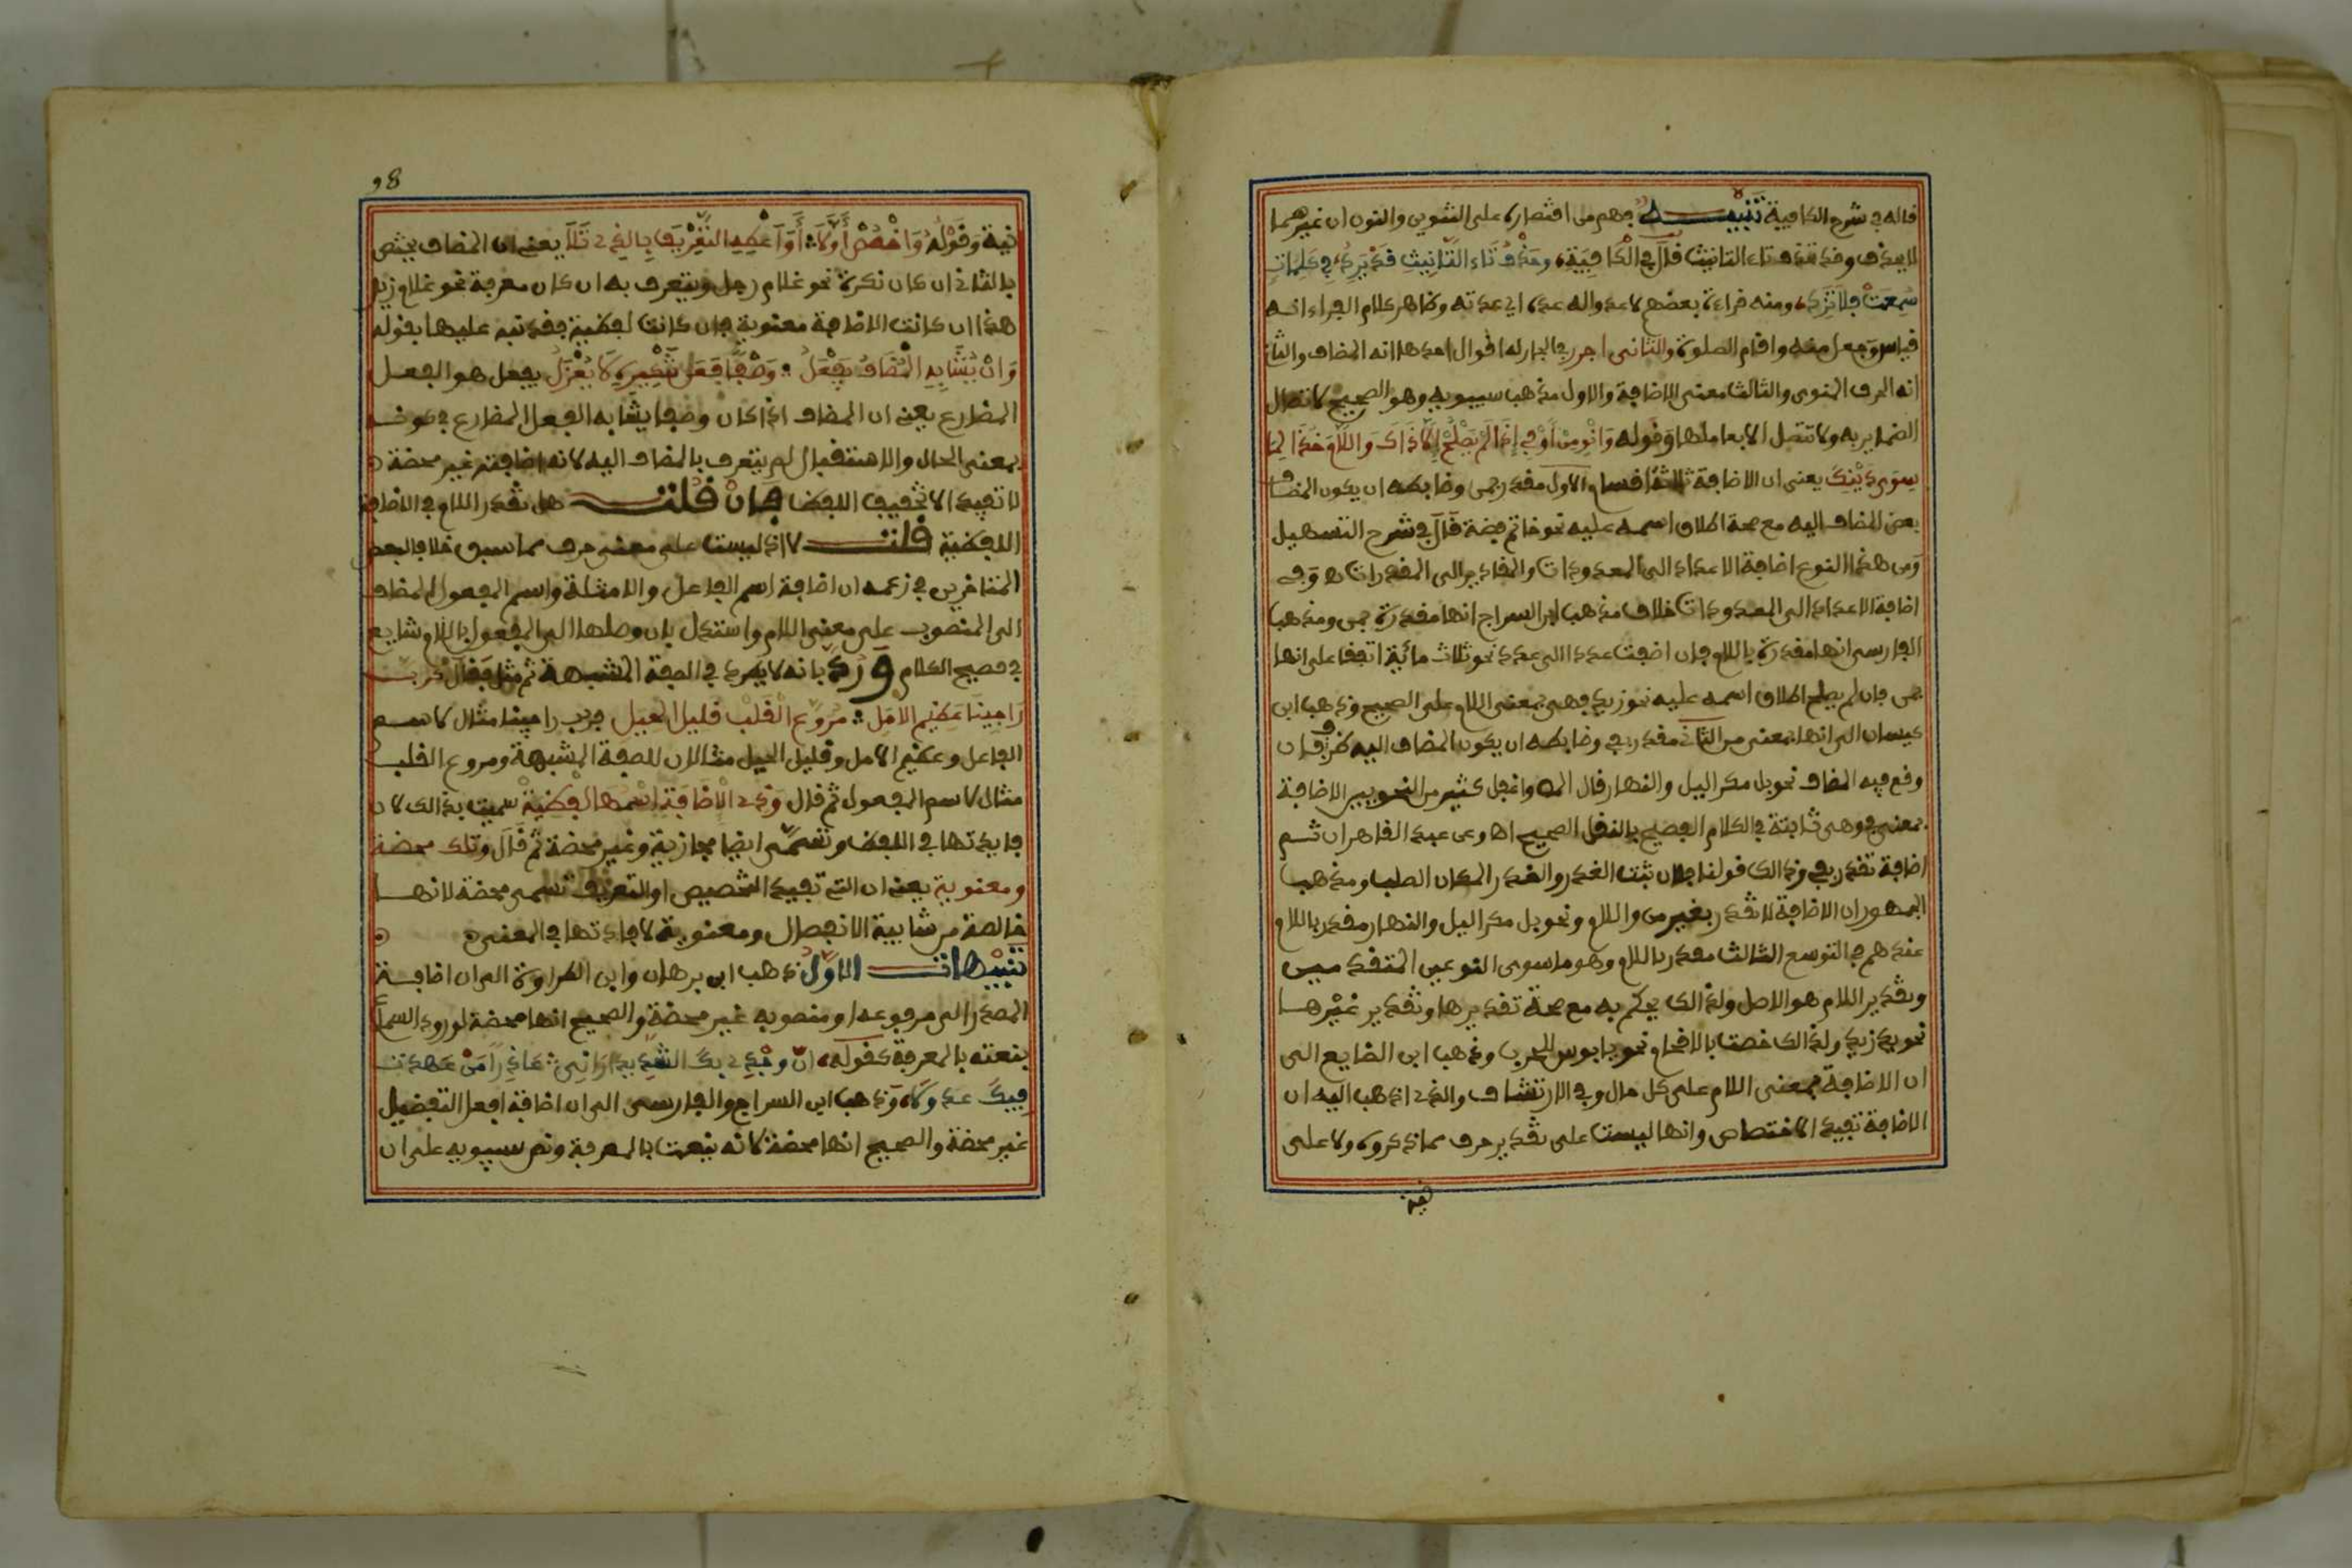 قاله في شرح الكافية تنبيه فهم من اقتصاره على التنوين والنون ان غيرهما
لا يحذف وقد تحذف تاء التانيث قال في الكافية، وحذف تاء التانيث قد يرد، في كلمات
سمعت فلا تزد، ومنه قراءة بعضهم لاعدوا له عده، اي عدته وظاهر كلام الفراء انه
قياس وجعل منه واقام الصلوة والثاني اجرر في الجار له اقوال احدها انه المضاف والثاني
انه الحرف المنوى والثالث معنى الاضافة والاول مذهب سيبويه وهو الصحيح لاتصال
الضماير به ولا تتصل الا بعاملها وقوله وانو من او في اذا لم يصلح الا ذاك واللام خذا لما
سوى ذينك يعنى ان الاضافة ثلاثة اقسام الاول مقدر بمن وضابطه ان يكون المضاف
بعض المضاف اليه مع صحة اطلاق اسمه عليه نحو خاتم فضة قال في شرح التسهيل
ومن هذا النوع اضافة الاعداد الى المعدودات والمقادير الى المقدرات اه وفى
اضافة الاعداد الى المعدودات خلاف مذهب ابن السراج انها مقدرة بمن ومذهب
الفارسى انها مقدرة باللام فان اضفت عددا الى عدد نحو ثلاث مائة اتفقا على انها
بمن فان لم يصلح اطلاق اسمه عليه نحو زيد فهى بمعنى اللام على الصحيح وذهب ابن
كيسان الى انها بمعنى من الثانى مقدر بفي وضابطه ان يكون المضاف اليه ظرفا
وقع فيه المضاف نحو بل مكر اليل والنهار قال المص واغفل كثير من النحويين الاضافة
بمعنى في وهى ثابتة في الكلام الفصيح بالنقل الصحيح اه وعن عبد القاهر ان ثم
اضافة تقدر بفي وذالك قولنا فلان ثبت الغدر والغدر المكان الصلب ومذهب
الجمهور ان الاضافة لا تقدر بغير من واللام ونحو بل مكر اليل والنهار مقدر باللام
عندهم في التوسع الثالث مقدر باللام وهو ما سوى النوعين المتقدمين
وتقدير اللام هو الاصل ولذالك يحكم به مع صحة تقديرها وتقدير غيرها
نحو يد زيد ولذالك خصت بالاقحام نحو يا بوس للحرب وذهب ابن الضايع الى
ان الاضافة بمعنى اللام على كل حال وفي الارتشاف والذى اذهب اليه ان
الاضافة تفيد الاختصاص وانها ليست على تقدير حرف مما ذكروه ولا على
نية
98
نية وقوله واخصص اولا، او اعطه التعريف بالذى تلا يعنى ان المضاف يختص
بالثانى ان كان نكرة نحو غلام رجل ويتعرف به ان كان معرفة نحو غلام زيد
هذا ان كانت الاضافة معنوية فان كانت لفظية فقد نبه عليها بقوله
وان يشابه المضاف يفعل وصفا فعن تنكيره لا يعزل يفعل هو الفعل
المضارع يعنى ان المضاف اذا كان وصفا يشابه الفعل المضارع في كونه
بمعنى الحال والاستقبال لم يتعرف بالمضاف اليه لانه اضافته غير محضة
لا تفيد الا تخفيف اللفظ فان قلت هل تقدر اللام في الاضافة
اللفظية قلت لا اذ ليست على معنى حرف مما سبق خلافا لبعض
المتاخرين في زعمه ان اضافة اسم الفاعل والامثلة واسم المفعول المضاف
الى المنصوب على معنى اللام واستدل بان وصلها الى المفعول باللام شايع
في فصيح الكلام ورد بانه لا يطرد في الصفة المشبهة ثم مثل فقال كرب
راجينا عظيم الامل مروع القلب قليل الحيل فرب راجينا مثال لاسم
الفاعل وعظيم الامل وقليل الحيل مثالان للصفة المشبهة ومروع القلب
مثال لاسم المفعول ثم قال وذى الاضافة اسمها لفظية سميت بذالك لان
فايدتها في اللفظ وتسمى ايضا مجازية وغير محضة ثم قال وتلك محضة
ومعنوية يعنى ان التى تفيد التخصيص او التعريف تسمى محضة لانها
خالصة من شايبة الانفصال ومعنوية لافادتها في المعنى
تنبيهات الاول ذهب ابن برهان وابن الطراوة الى ان اضافة
المصدر الى مرفوعه او منصوبه غير محضة والصحيح انها محضة لورود السماع
بنعته بالمعرفة كقوله، ان وجدى بك الشديد ارانى عاذرا من عهدت
فيك عذولا، وذهب ابن السراج والفارسى الى ان اضافة افعل التفضيل
غير محضة والصحيح انها محضة لانه ينعت بالمعرفة ونص سيبويه على ان